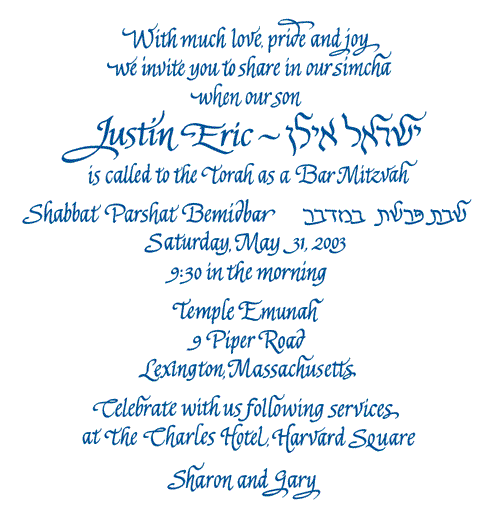 With much love, pride and joy
we invite you to share in our simcha
when our son
Justin Eric ~ ישראל אילן
is called to the Torah as a Bar Mitzvah
Shabbat Parshat Bemidbar שבת פרשת במדבר
Saturday, May 31, 2003
9:30 in the morning
Temple Emunah
9 Piper Road
Lexington, Massachusetts
Celebrate with us following services
at the Charles Hotel, Harvard Square
Sharon and Gary